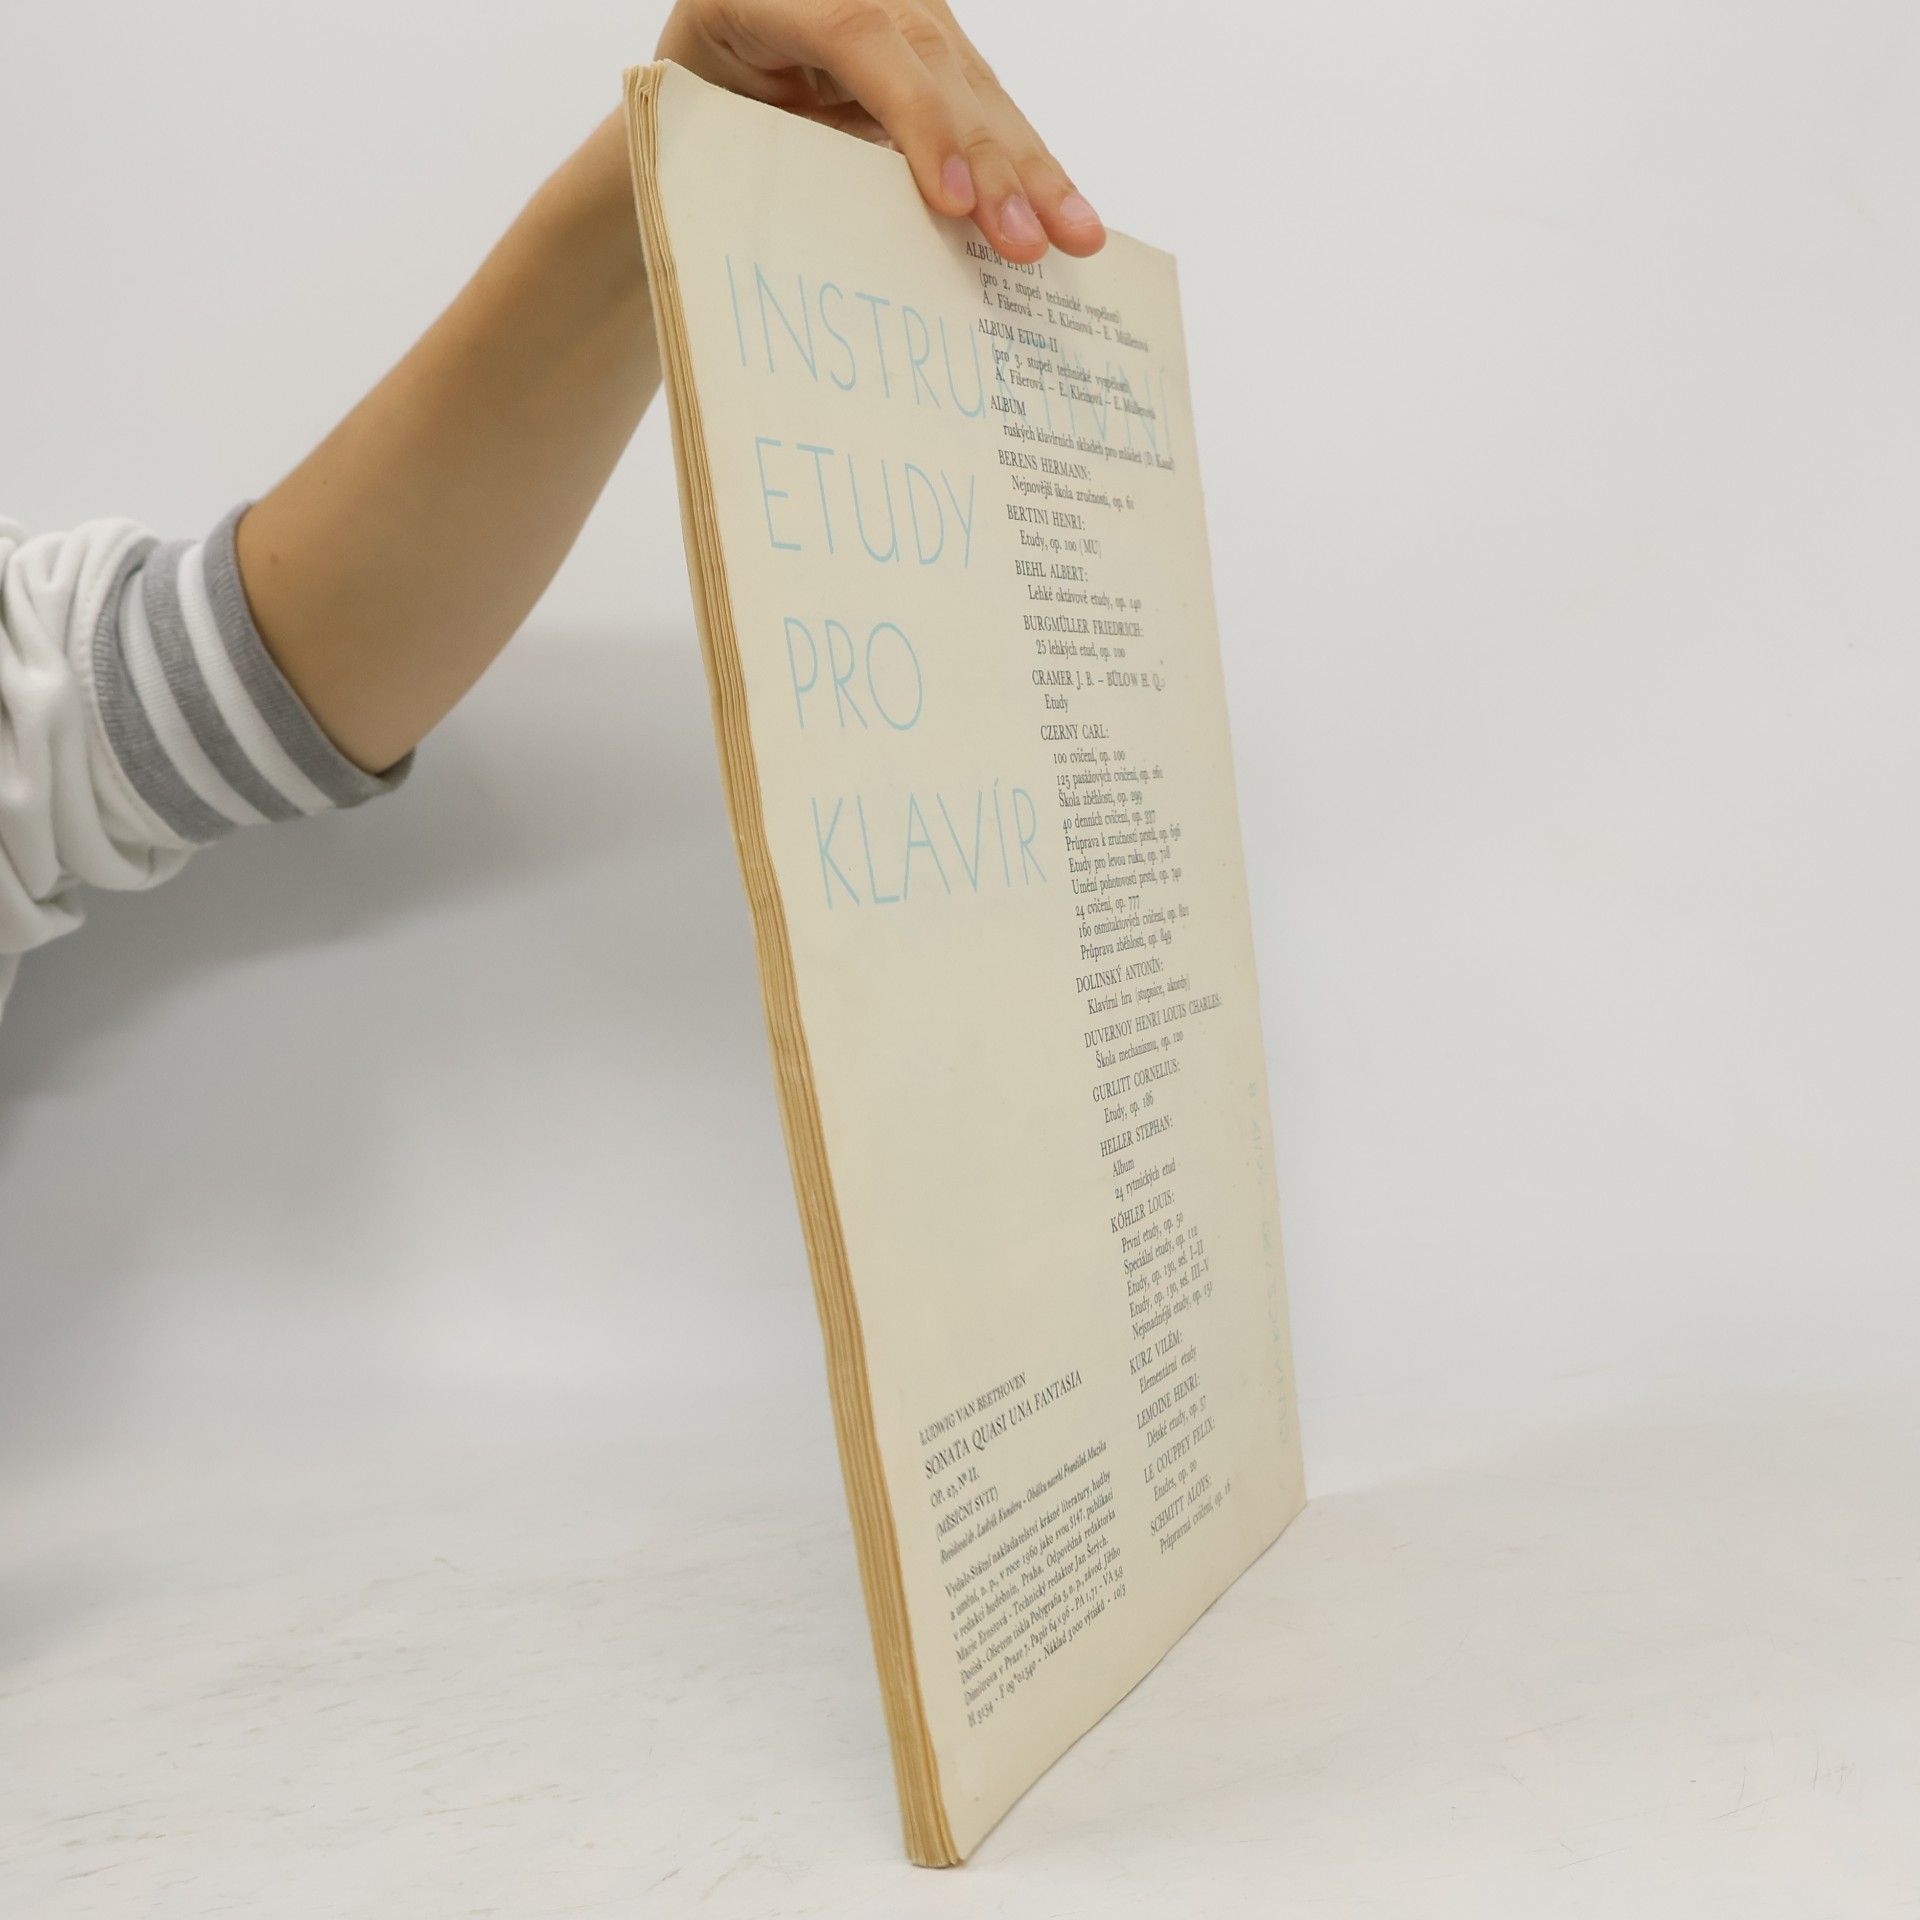 INSTRUKTIVNÍ
ETUDY
PRO
KLAVÍR
ALBUM ETUD I
(pro 2. stupeň technické vyspělosti)
A. Fišerová – E. Kleinová – E. Müllerová
ALBUM ETUD II
(pro 3. stupeň technické vyspělosti)
A. Fišerová – E. Kleinová – E. Müllerová
ALBUM
ruských klavírních skladeb pro mládež (D.
BERENS HERMANN:
Nejnovější škola zručnosti, op. 61
BERTINI HENRI:
Etudy, op. 100 (MU)
BIEHL ALBERT:
Lehké oktávové etudy, op. 140
BURGMÜLLER FRIEDRICH:
25 lehkých etud, op. 100
CRAMER J. B. – BÜLOW H. Q.:
Etudy
CZERNY CARL:
100 cvičení, op. 100
125 pasážových cvičení, op. 261
Škola zběhlosti, op. 299
40 denních cvičení, op. 337
Průprava k zručnosti prstů, op. 636
Etudy pro levou ruku, op. 718
Umění pohotovosti prstů, op. 740
24 cvičení, op. 777
160 osmitaktových cvičení, op. 821
Průprava zběhlosti, op. 849
DOLINSKÝ ANTONÍN:
Klavírní hra (stupnice, akordy)
DUVERNOY HENRI LOUIS CHARLES:
Škola mechanismu, op. 120
GURLITT CORNELIUS:
Etudy, op. 186
HELLER STEPHAN:
Album
24 rytmických etud
KÖHLER LOUIS:
První etudy, op. 50
Speciální etudy, op. 112
Etudy, op. 130, seš. I–II
Etudy, op. 130, seš. III–V
Nejsnadnější etudy, op. 151
KURZ VILÉM:
Elementární etudy
LEMOINE HENRI:
Dětské etudy, op. 37
LE COUPPEY FELIX:
Etudes, op. 20
SCHMITT ALOYS:
Průpravná cvičení, op. 16
LUDWIG VAN BEETHOVEN
SONATA QUASI UNA FANTASIA
OP. 27, Nº II.
(MĚSÍČNÍ SVIT)
Revidoval dr. Ludvík Kundera - Obálku navrhl František Muzika
Vydalo Státní nakladatelství krásné literatury, hudby
a umění, n. p., v roce 1960 jako svou 3147. publikaci
v redakci hudebnin, Praha. Odpovědná redaktorka
Marie Ernstová - Technický redaktor Jan Šerých.
Dotisk - Ofsetem tiskla Polygrafia 3, n. p., závod Jiřího
Dimitrova v Praze 7. Papír 64×96 - PA 1,71 - VA 3,9
H 3134 - F 09*01340 - Náklad 3000 výtisků - 10/3